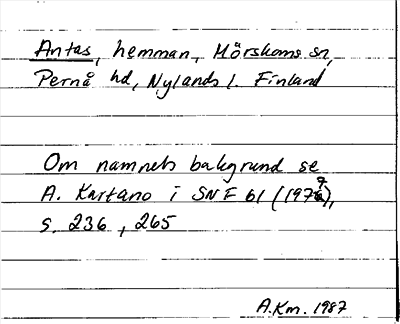 Antas, hemman, Mörskoms sn,
Pernå hd, Nylands l. Finland
Om namnets bakgrund se
A. Kartano i SNF 61 (1979),
s. 236, 265
A.Km. 1987